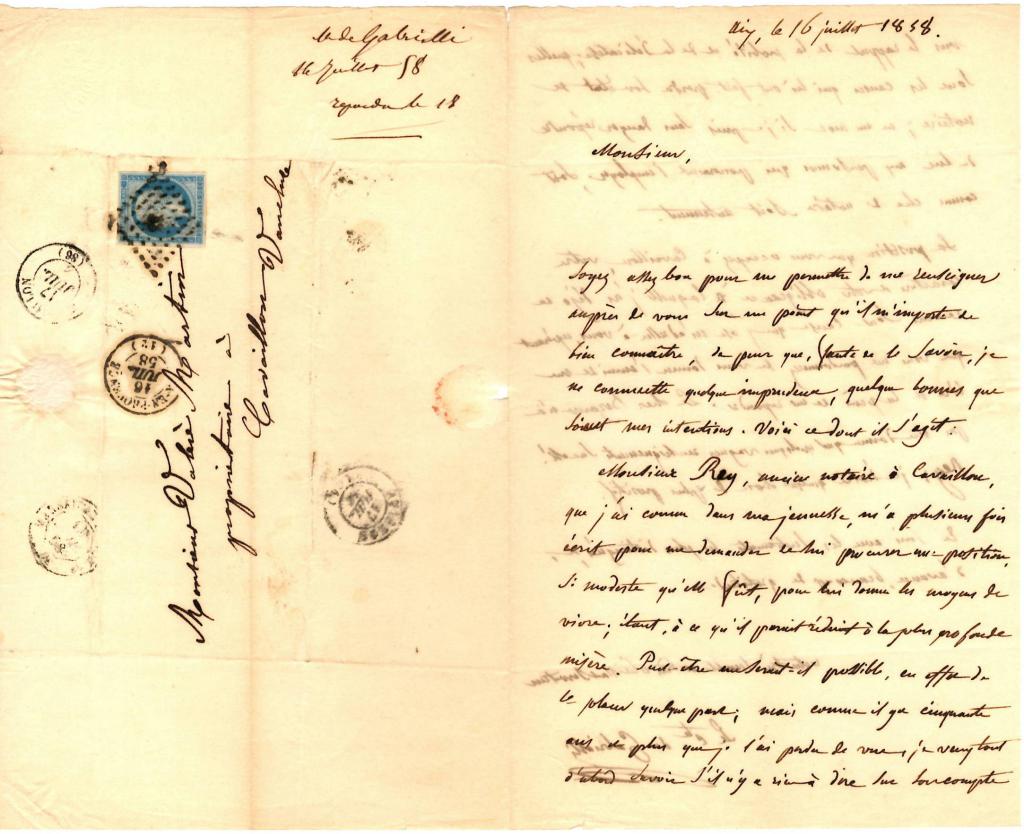 M de Gabrielli
16 Juillet 58
repondu le 18
Monsieur Valère Martin
propriétaire à
Cavaillon Vaucluse
17
JUIL.
(86)
16
JUIL.
58
(12)
Aix, le 16 juillet 1858.
Monsieur,
Soyez assez bon pour me permettre de me renseigner
auprès de vous sur un point qu'il m'importe de
bien connaître, de peur que, faute de le savoir, je
ne commette quelque imprudence, quelque bonnes que
soient mes intentions. Voici ce dont il s'agit:
Monsieur Rey, ancien notaire à Cavaillon,
que j'ai connu dans ma jeunesse, m'a plusieurs fois
écrit pour me demander de lui procurer une position,
si modeste qu'elle fût, pour lui donner les moyens de
vivre; étant, à ce qu'il parait réduit à la plus profonde
misère. Peut-être me serait-il possible, en effet de
le placer quelque part; mais comme il y a cinquante
ans et plus que je l'ai perdu de vue, je veux tout
d'abord savoir s'il n'y a rien à dire sur son compte